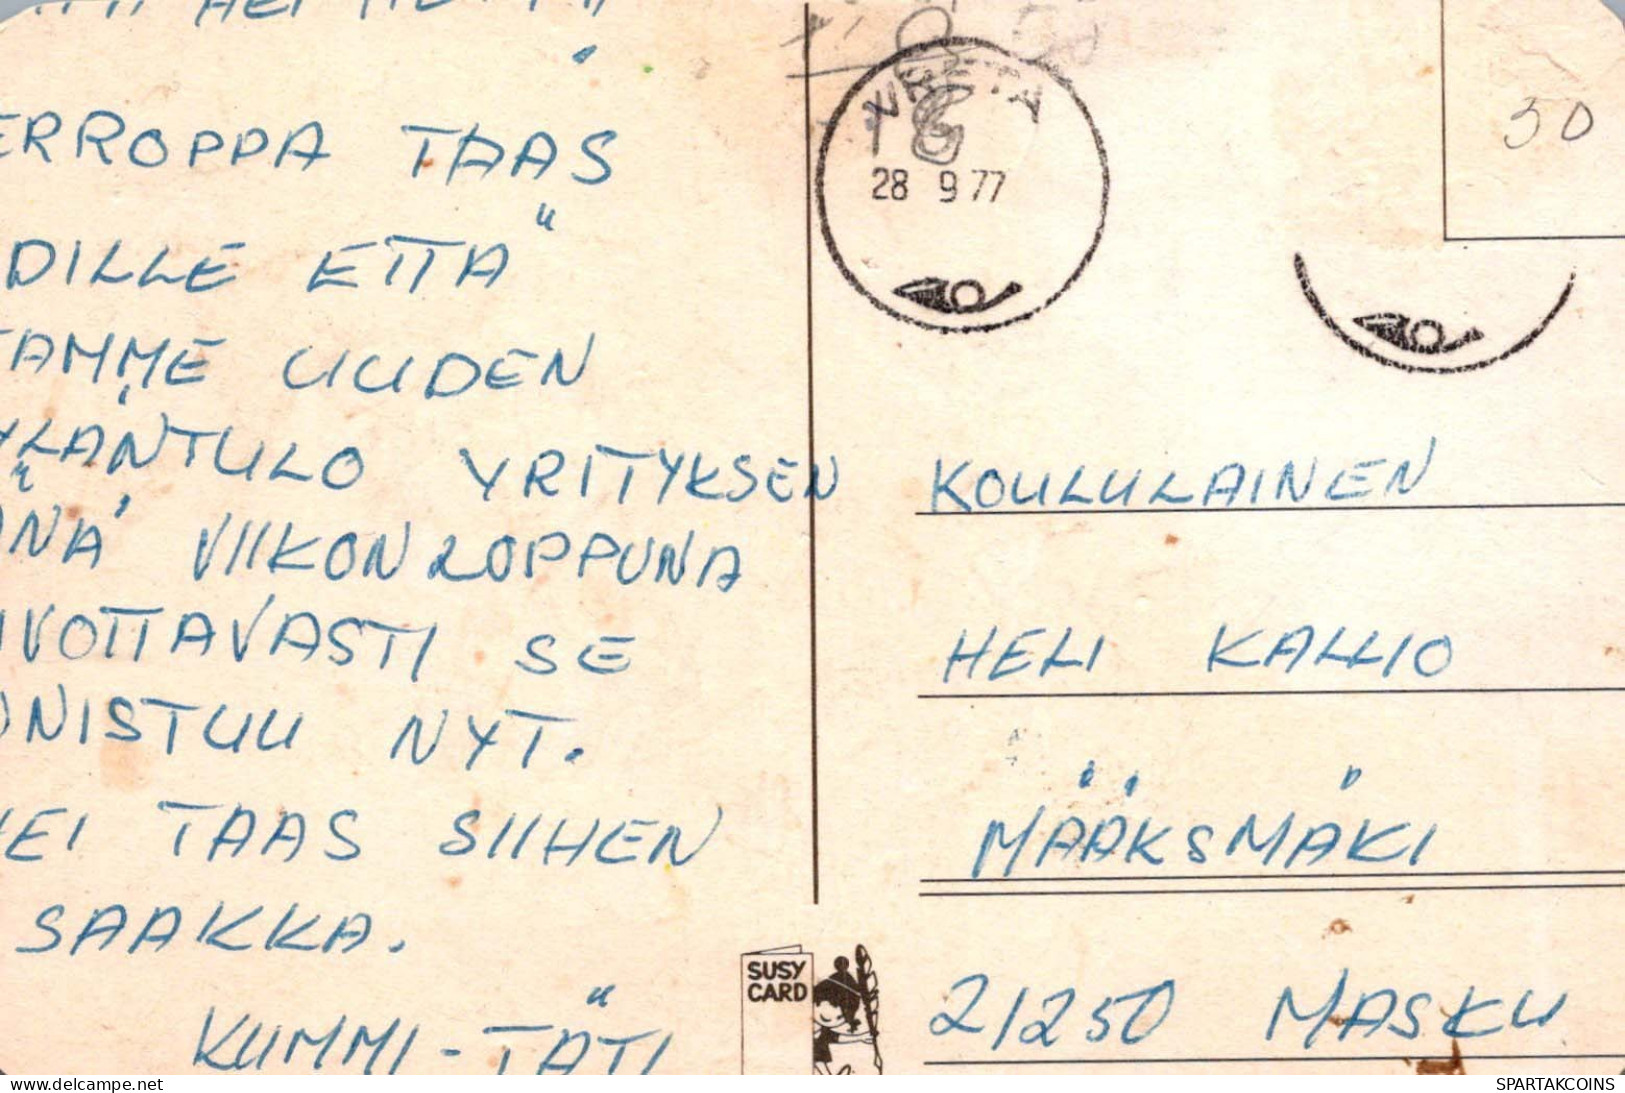 HEI
ERROPPA TAAS
DILLE ETTÄ
TAMME UUDEN
YLÄNTULO YRITYKSEN
ÄNÄ VIIKONLOPPUNA
IVOTTAVASTI SE
ONISTUU NYT.
HEI TAAS SIIHEN
SAAKKA.
KUMMI-TÄTI
VRETA
28 9 77
50
KOULULAINEN
HELI KALLIO
MÄÄKSMÄKI
21250 MASKU
SUSY
CARD
www.delcampe.net
SPARTAKCOINS